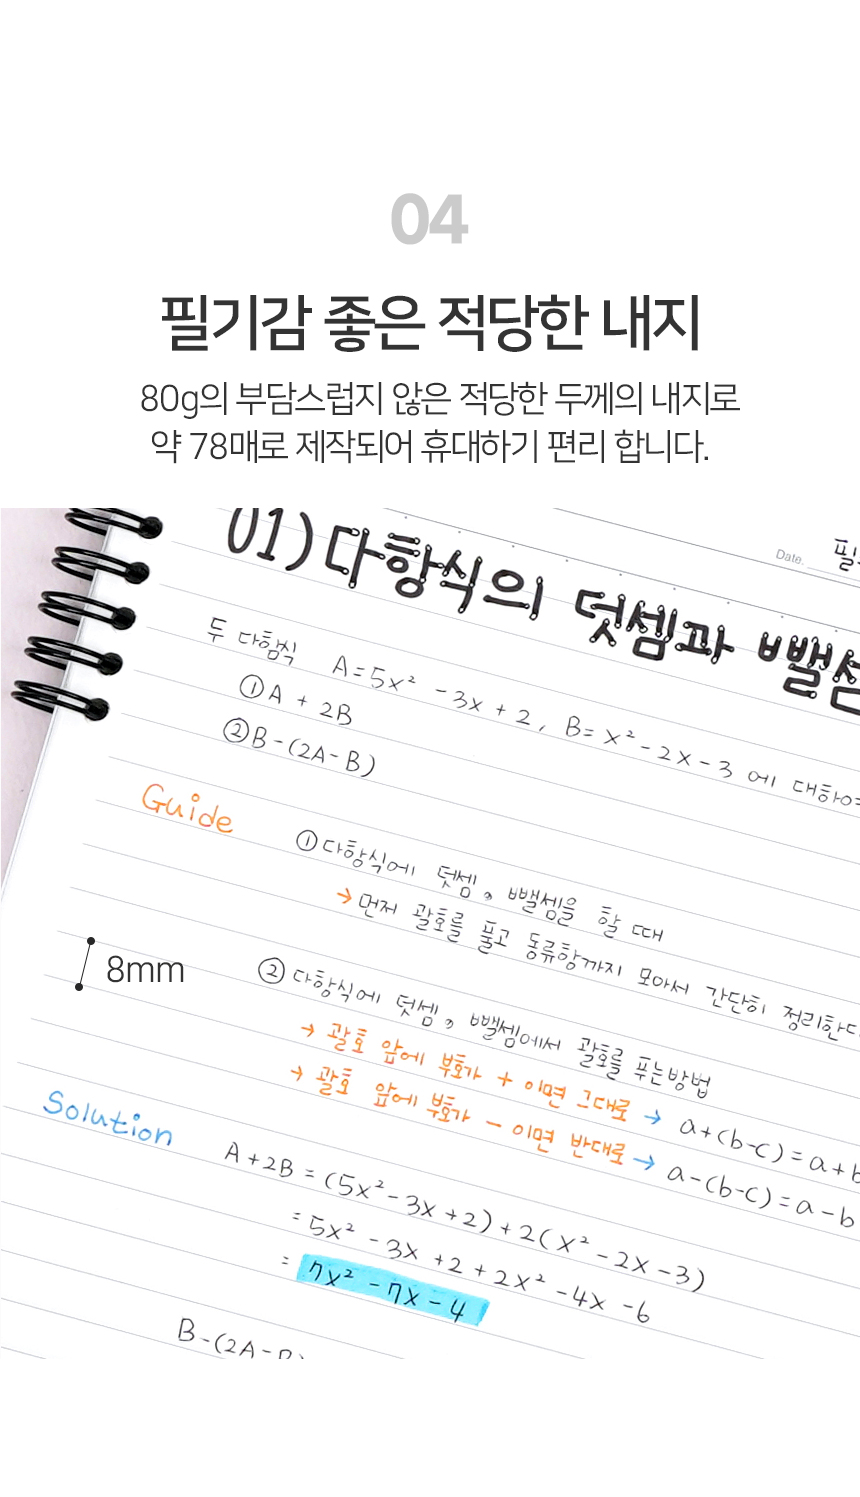 04
필기감 좋은 적당한 내지
80g의 부담스럽지 않은 적당한 두께의 내지로
약 78매로 제작되어 휴대하기 편리 합니다.
Date.
01) 다항식의 덧셈과 뺄셈
두 다항식 A=5x² -3x+2, B=x²-2x-3 에 대하여
①A + 2B
②B-(2A-B)
Guide
①다항식에 덧셈, 뺄셈을 할 때
→먼저 괄호를 풀고 동류항까지 모아서 간단히 정리한다
8mm
② 다항식에 덧셈, 뺄셈에서 괄호를 푸는방법
→ 괄호 앞에 부호가 + 이면 그대로 → a+(b-c)=a+b
→ 괄호 앞에 부호가 - 이면 반대로 → a-(b-c)=a-b
Solution
A+2B = (5x²-3x+2)+2(x²-2x-3)
= 5x² -3x +2+2x² -4x -6
= 7x² -7x-4
B-(2A-B)